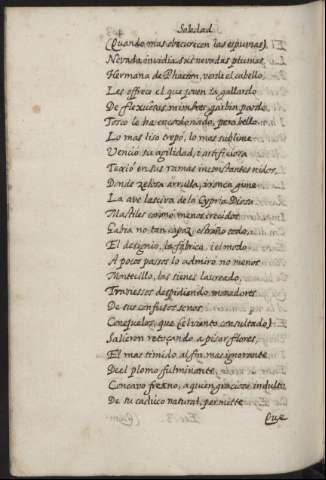 Soledad.
(Quando mas obscurecen las espumas)
Nevada, invidia, sus nevadas plumas
Hermana de Phaeton, verde el cabello,
Les offrece el que joven ia gallardo
De flexuosas mimbres garbin pardo
Tosco le ha encordonado, pero bello.
Lo mas liso trepó, lo mas sublime
Venció su agilidad, i artificiosa
Texió en sus ramas inconstantes nidos,
Donde zelosa arrulla, i ronca gime
La ave lasciva de la Cypria Diosa
Mastiles coronó menos crecidos
Gabia no tan capaz, estraño todo,
El designio, la fabrica, i el modo.
A pocos passos lo admiró no menos
Montecillo, las sienes laureado,
Traviessos despidiendo moradores
De sus confusos senos,
Conejuelos, que (el viento consultado)
Salieron retoçando a pisar flores,
El mas timido al fin mas ignorante
Del plomo fulminante.
Concavo frexno, a quien gracioso indulto
De su caduco natural, permitte
Que